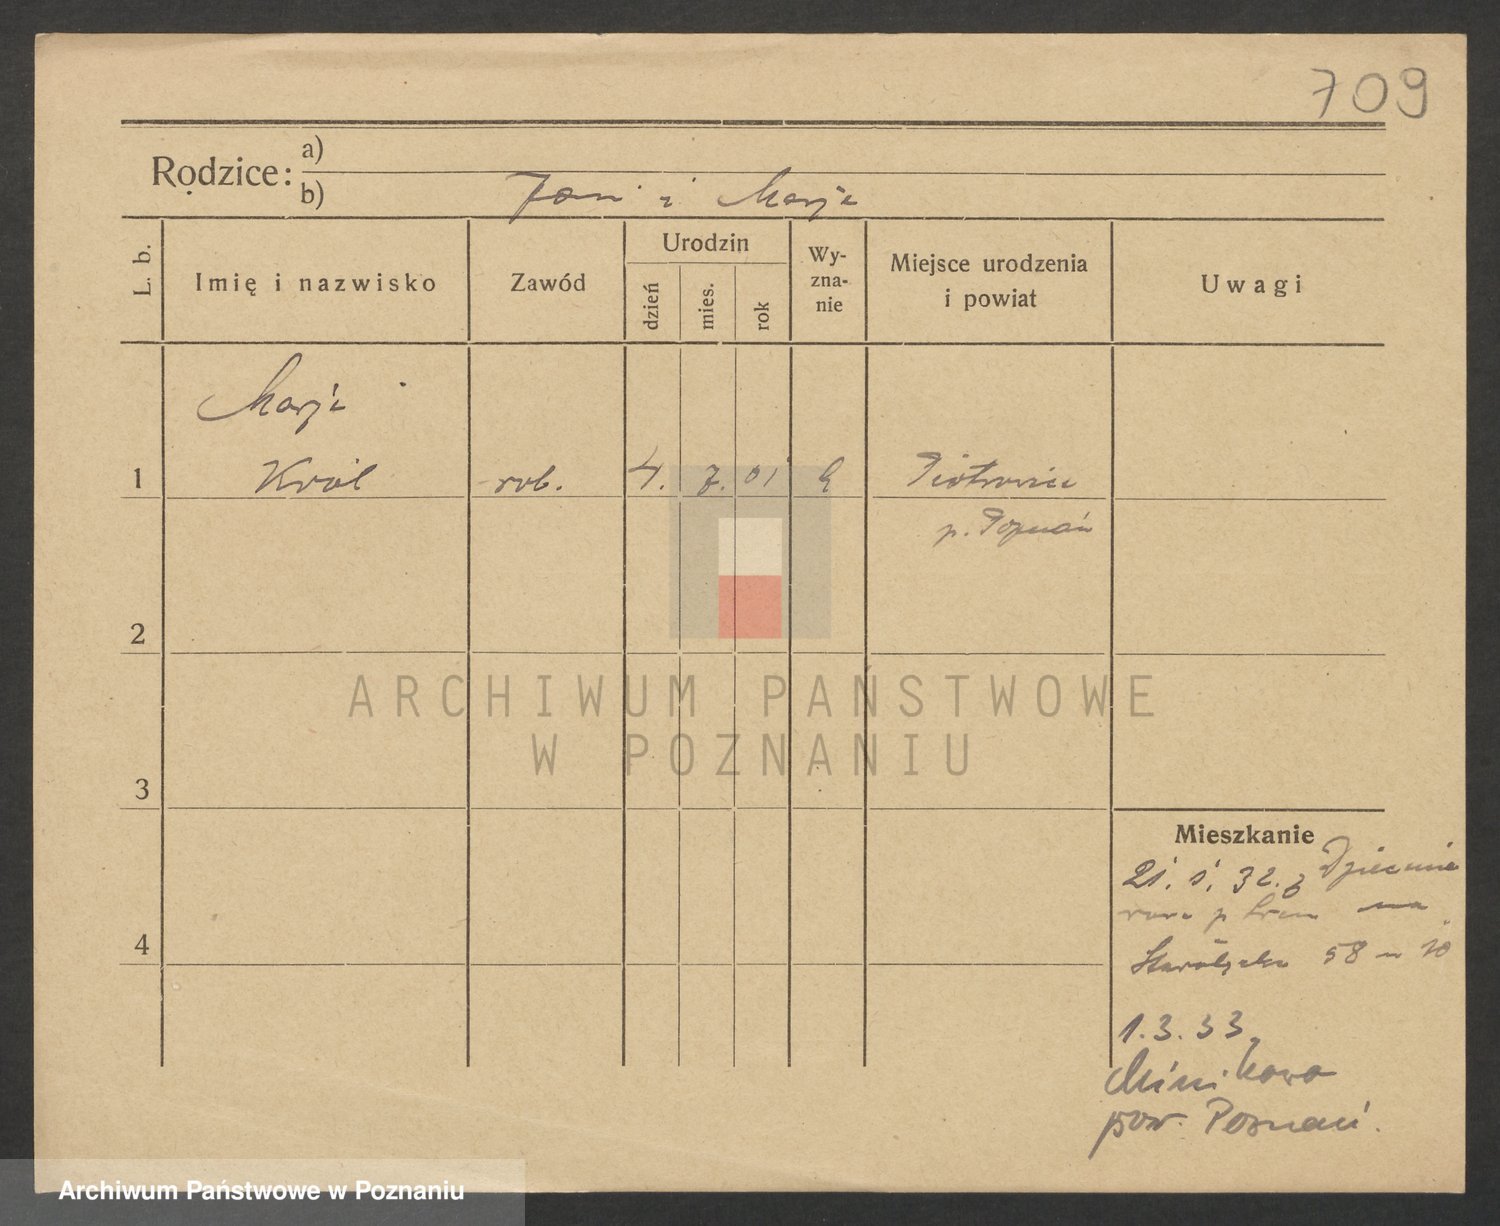 709
Rodzice: a)
b) Jan i Marja
L. b.
Imię i nazwisko
Zawód
Urodzin
dzień
mies.
rok
Wy-
zna-
nie
Miejsce urodzenia
i powiat
Uwagi
Marja
1 Król rob. 4. 7. 01 k Piotrowice
p. Poznań
2
ARCHIWUM PAŃSTWOWE
W POZNANIU
3
Mieszkanie
21. 1. 32. z
p. Śrem na
4
Starołęcka 58 m 10
1.3.33.
Minikowo
pow. Poznań.
Archiwum Państwowe w Poznaniu